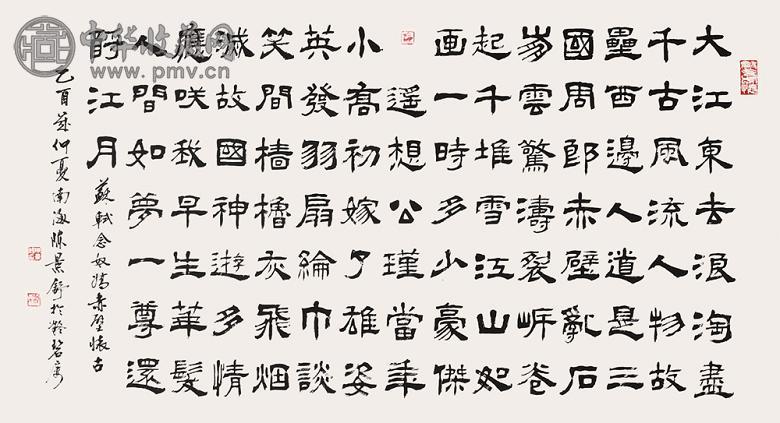 中华收藏网
www.pmv.cn
大江東去浪淘盡
千古風流人物故
壘西邊人道是三
國周郎赤壁亂石
崩雲驚濤裂岸卷
起千堆雪江山如
画一時多少豪傑
遥想公瑾當年
小喬初嫁了雄姿
英發羽扇綸巾談
笑間檣櫓灰飛烟
滅故國神遊多情
應咲我早生華髮
人間如夢一尊還
酹江月
蘇軾念奴嬌赤壁懷古
乙酉歲仲夏南海陳景舒於